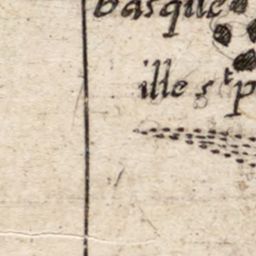 basque
ille st p